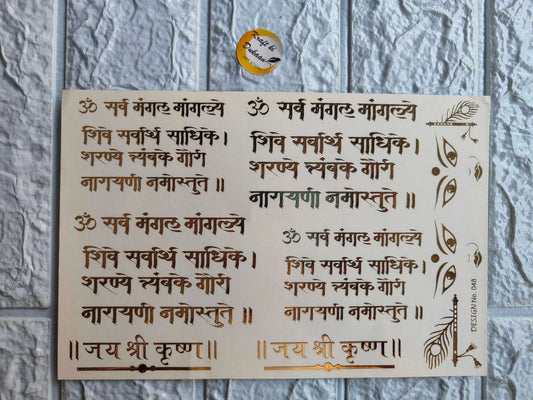 Kraft ki
Dukaan
ॐ सर्व मंगल मांगल्ये
शिवे सर्वार्थ साधिके।
शरण्ये त्र्यंबके गौरी
नारायणी नमोस्तुते ॥
ॐ सर्व मंगल मांगल्ये
शिवे सर्वार्थ साधिके।
शरण्ये त्र्यंबके गौरी
नारायणी नमोस्तुते ॥
ॐ सर्व मंगल मांगल्ये
शिवे सर्वार्थ साधिके।
शरण्ये त्र्यंबके गौरी
नारायणी नमोस्तुते ॥
ॐ सर्व मंगल मांगल्ये
शिवे सर्वार्थ साधिके।
शरण्ये त्र्यंबके गौरी
नारायणी नमोस्तुते ॥
॥जय श्री कृष्ण॥
॥जय श्री कृष्ण॥
DESIGN No. 048